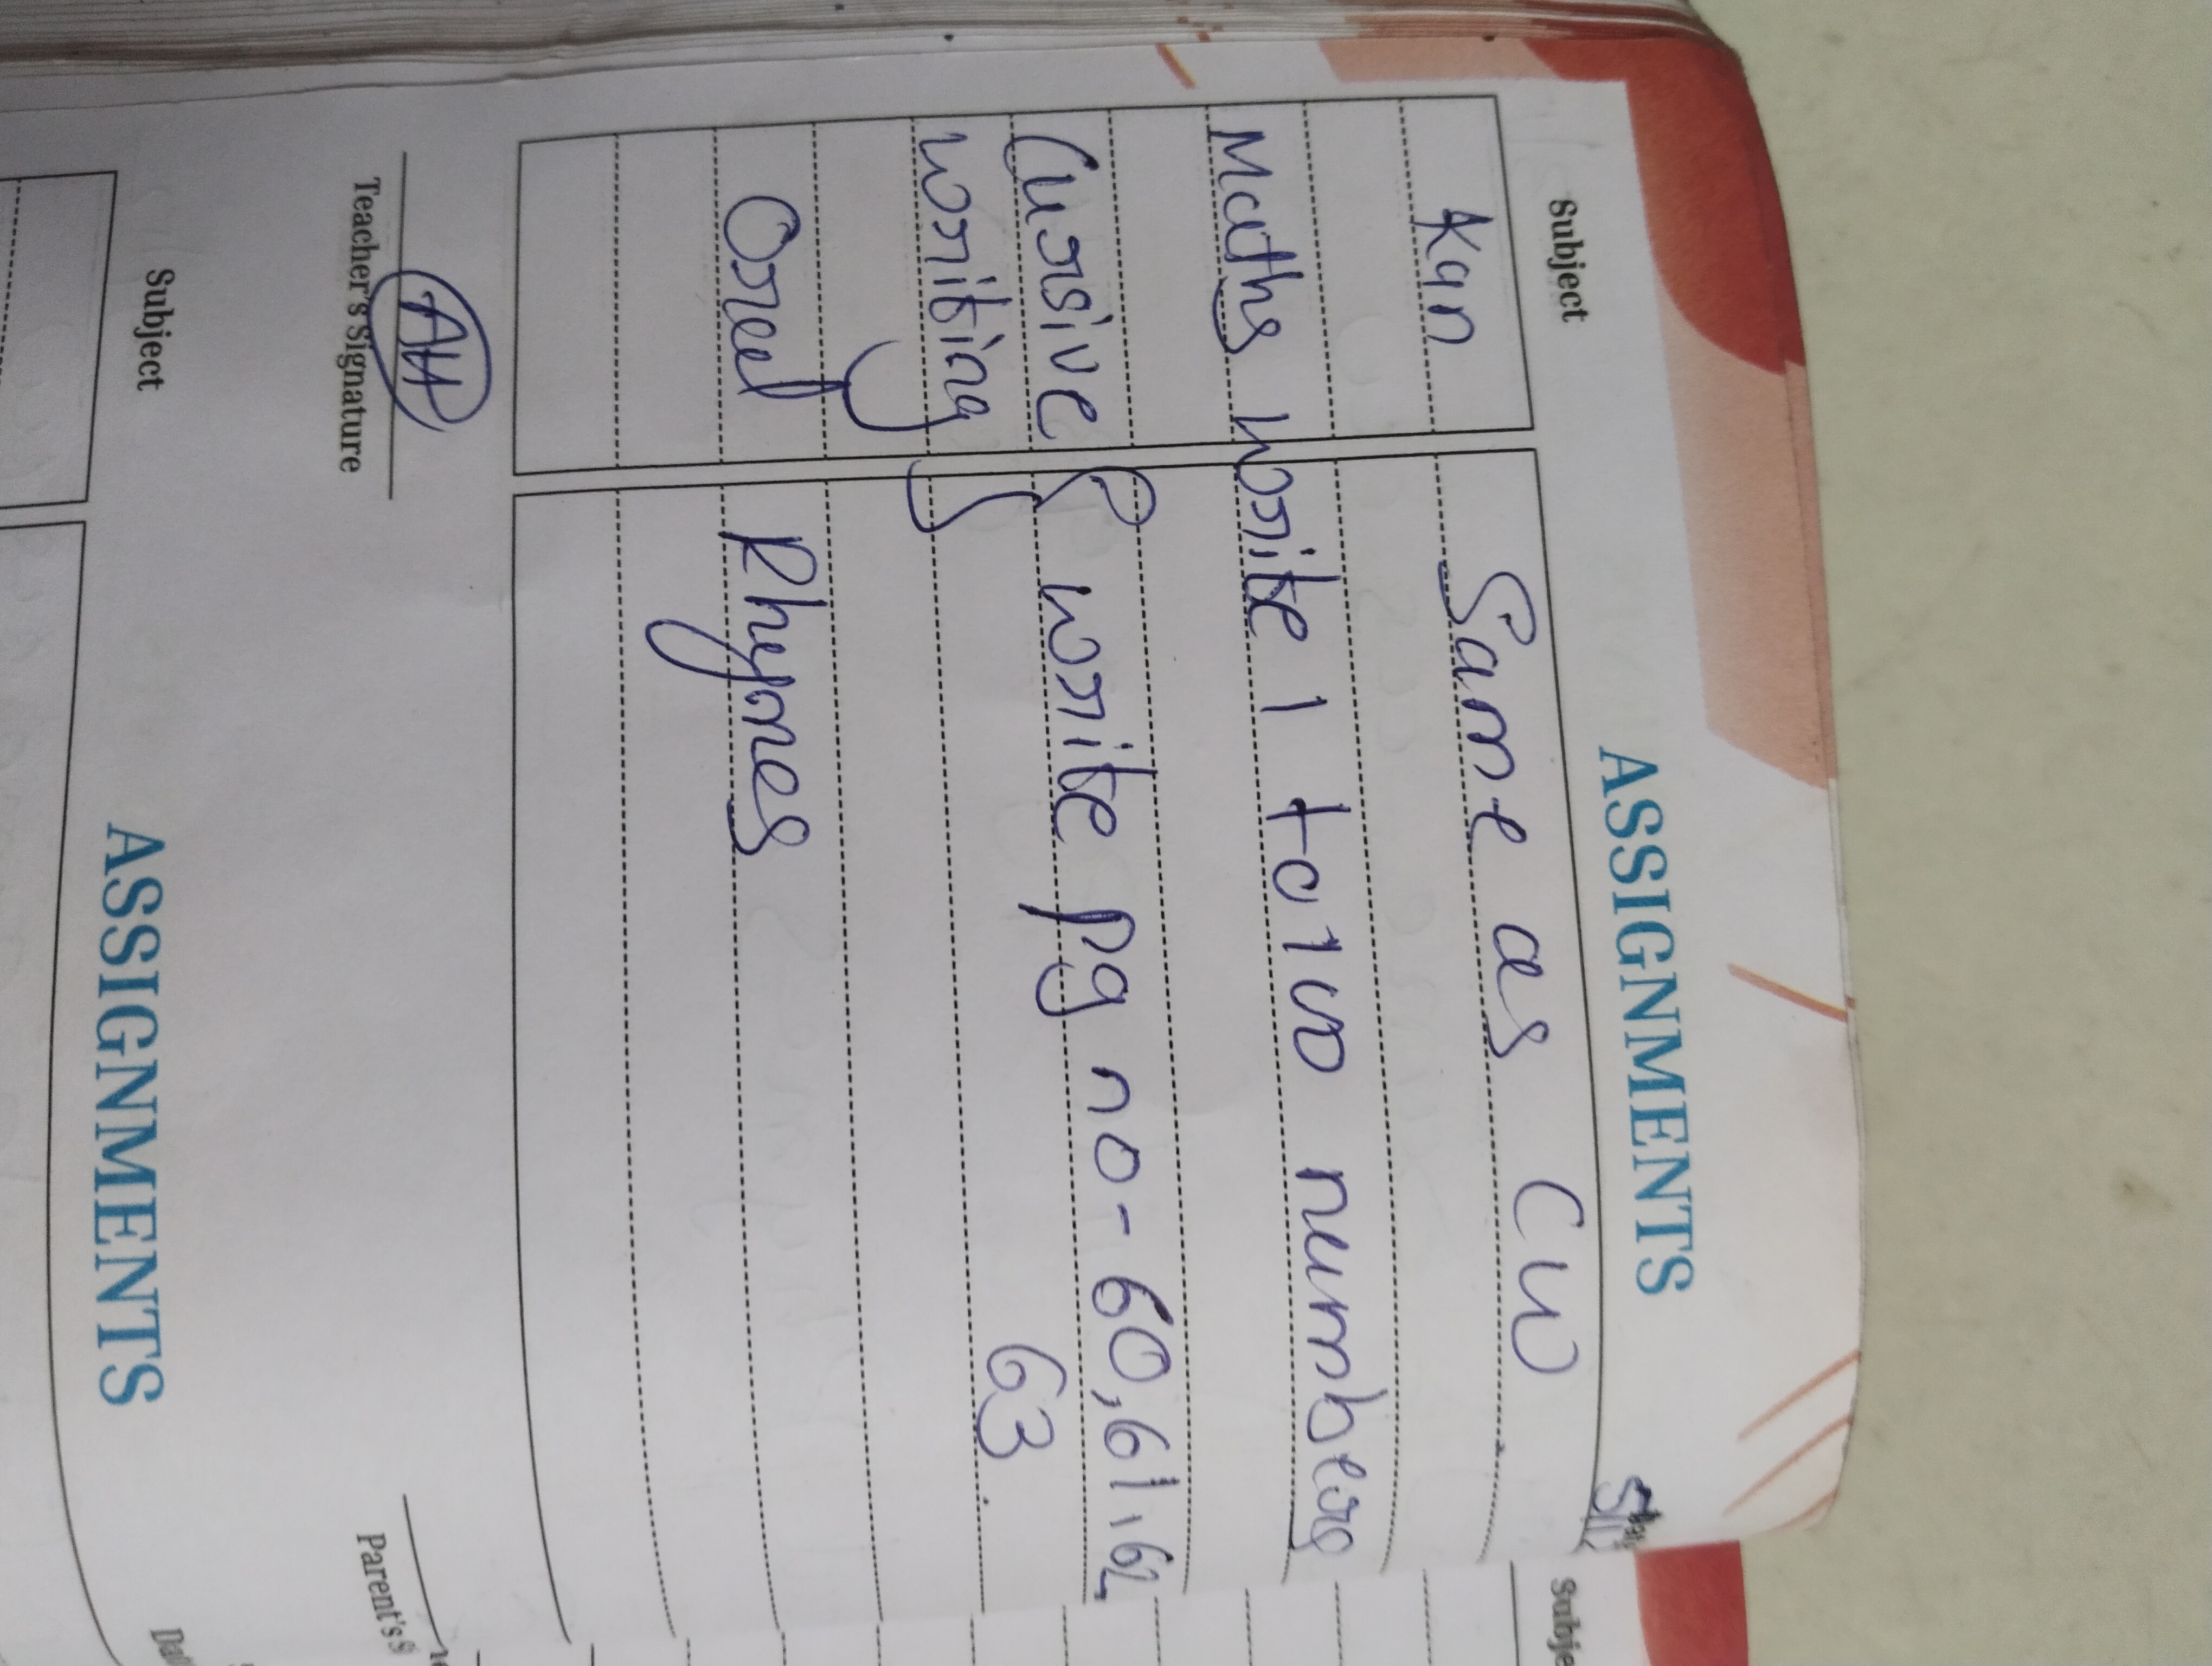 ASSIGNMENTS
Subject
Kan Same as CW
Maths write 1 to 100 numbers
Cursive write pg no- 60,61,62
writing 63.
Oral Rhymes
Teacher's Signature
Parent's
Subject
ASSIGNMENTS